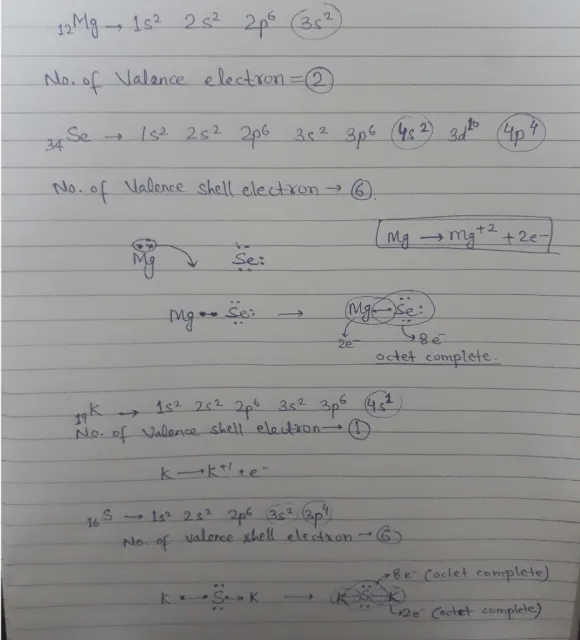 ₁₂Mg → 1s² 2s² 2p⁶ 3s²
No. of Valence electron = 2
₃₄Se → 1s² 2s² 2p⁶ 3s² 3p⁶ 4s² 3d¹⁰ 4p⁴
No. of Valence shell electron → 6.
Mg → mg⁺² + 2e⁻
Mg Se:
Mg Se: → Mg Se:
2e⁻ 8e⁻
octet complete.
₁₉K → 1s² 2s² 2p⁶ 3s² 3p⁶ 4s¹
No. of Valence shell electron → 1
K → K⁺¹ + e⁻
₁₆S → 1s² 2s² 2p⁶ 3s² 3p⁴
No. of valence shell electron → 6
8e⁻ (octet complete)
K S K → K S K
2e⁻ (octet complete)